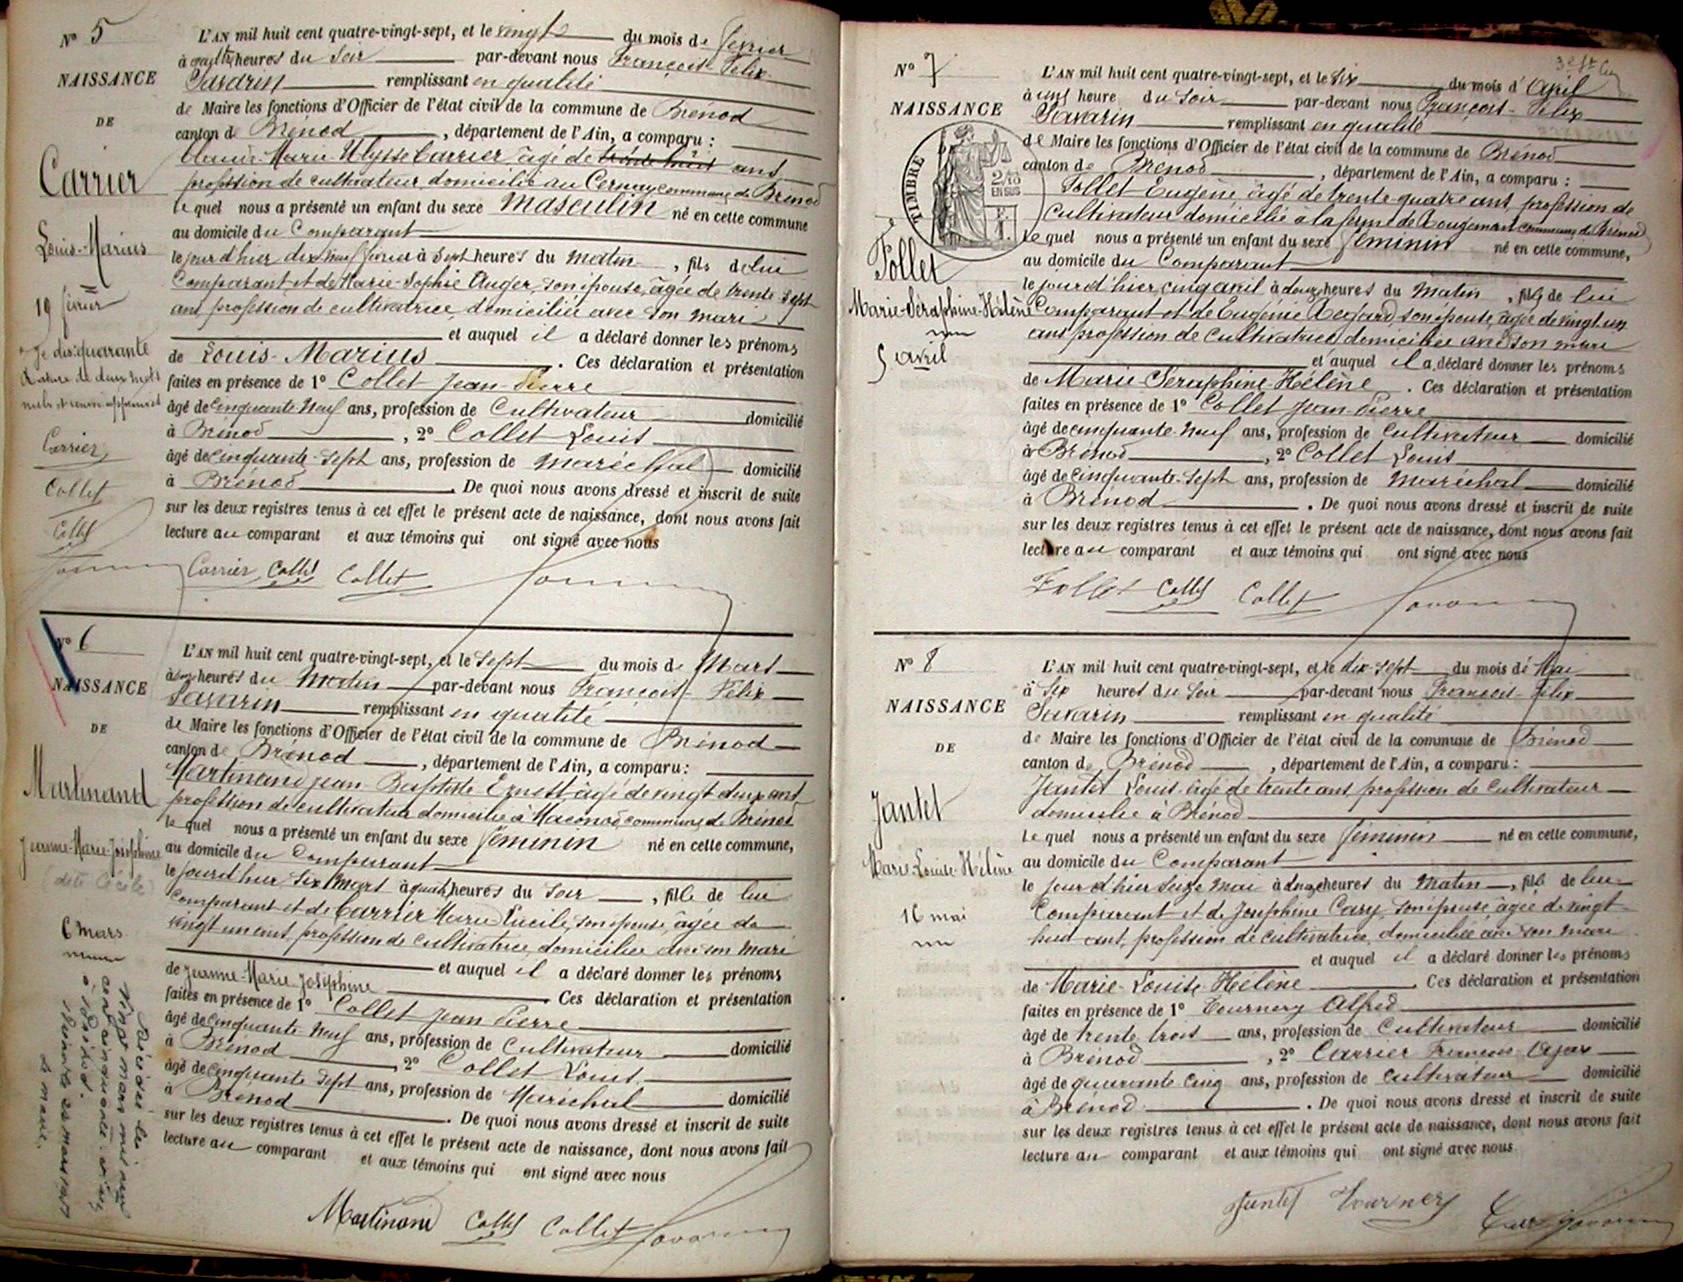 N° 5
NAISSANCE
DE
Carrier
Louis-Marius
19 février
Je dis: quarante
Rature de deux mots
nuls et renvoi approuvés
Carrier
Collet
Collet
L'AN mil huit cent quatre-vingt-sept, et le vingt du mois de février
à quatre heures du Soir par-devant nous François-Félix
Savarin remplissant en qualité
de Maire les fonctions d'Officier de l'état civil de la commune de Brénod
canton de Brénod, département de l'Ain, a comparu :
Marie-Ulysse Carrier âgé de trente huit ans
profession de cultivateur domicilié au Cernay commune de Brénod
Lequel nous a présenté un enfant du sexe Masculin né en cette commune
au domicile du Comparant
le jour d'hier dix neuf février à Sept heures du matin, fils de lui
Comparant et de Marie-Sophie Auger, son épouse, âgée de trente sept
ans profession de cultivatrice, domiciliée avec son mari
et auquel il a déclaré donner les prénoms
de Louis-Marius. Ces déclaration et présentation
faites en présence de 1° Collet Jean-Pierre
âgé de cinquante-neuf ans, profession de Cultivateur domicilié
à Brénod, 2° Collet Louis
âgé de cinquante-sept ans, profession de Maréchal domicilié
à Brénod. De quoi nous avons dressé et inscrit de suite
sur les deux registres tenus à cet effet le présent acte de naissance, dont nous avons fait
lecture au comparant et aux témoins qui ont signé avec nous
Carrier Collet Collet Savarin
N° 6
NAISSANCE
DE
Martinand
Jeanne-Marie-Joséphine
(dite Cécile)
6 mars
Décédée le
vingt mars mil neuf
cent cinquante et un
à Brénod.
le 22 mars 1951
Le maire.
L'AN mil huit cent quatre-vingt-sept, et le Sept du mois de Mars
à heures du Matin par-devant nous François-Félix
Savarin remplissant en qualité
de Maire les fonctions d'Officier de l'état civil de la commune de Brénod
canton de Brénod, département de l'Ain, a comparu :
Martinand Jean-Baptiste Ernest, âgé de vingt deux ans
profession de cultivateur domicilié à Maconod, commune de Brénod
Lequel nous a présenté un enfant du sexe féminin né en cette commune,
au domicile du Comparant
le jour d'hier Six Mars à quatre heures du Soir, fille de lui
Comparant et de Carrier Marie Lucile, son épouse, âgée de
vingt un ans, profession de cultivatrice, domiciliée avec son mari
et auquel il a déclaré donner les prénoms
de Jeanne-Marie Joséphine. Ces déclaration et présentation
faites en présence de 1° Collet Jean Pierre
âgé de cinquante-neuf ans, profession de Cultivateur domicilié
à Brénod, 2° Collet Louis
âgé de cinquante Sept ans, profession de Maréchal domicilié
à Brénod. De quoi nous avons dressé et inscrit de suite
sur les deux registres tenus à cet effet le présent acte de naissance, dont nous avons fait
lecture au comparant et aux témoins qui ont signé avec nous
Martinand Collet Collet Savarin
N° 7
NAISSANCE
DE
TIMBRE
2/10
EN SUS
Follet
Marie-Séraphine-Hélène
5 avril
L'AN mil huit cent quatre-vingt-sept, et le Six du mois d'Avril
à une heure du Soir par-devant nous François-Félix
Savarin remplissant en qualité
de Maire les fonctions d'Officier de l'état civil de la commune de Brénod
canton de Brénod, département de l'Ain, a comparu :
Follet Eugène âgé de trente quatre ans, profession de
Cultivateur domicilié à la ferme de Rougemont commune de Brénod
Lequel nous a présenté un enfant du sexe féminin né en cette commune,
au domicile du Comparant
le jour d'hier cinq avril à douze heures du Matin, fille de lui
Comparant et de Eugénie Regard, son épouse, âgée de vingt un
ans profession de Cultivatrice domiciliée avec son mari
et auquel il a déclaré donner les prénoms
de Marie Séraphine Hélène. Ces déclaration et présentation
faites en présence de 1° Collet Jean Pierre
âgé de cinquante-neuf ans, profession de Cultivateur domicilié
à Brénod, 2° Collet Louis
âgé de cinquante-Sept ans, profession de Maréchal domicilié
à Brénod. De quoi nous avons dressé et inscrit de suite
sur les deux registres tenus à cet effet le présent acte de naissance, dont nous avons fait
lecture au comparant et aux témoins qui ont signé avec nous
Follet Collet Collet Savarin
N° 8
NAISSANCE
DE
Jantet
Marie-Louise-Hélène
16 mai
L'AN mil huit cent quatre-vingt-sept, et le dix-sept du mois de Mai
à Six heures du Soir par-devant nous François-Félix
Savarin remplissant en qualité
de Maire les fonctions d'Officier de l'état civil de la commune de Brénod
canton de Brénod, département de l'Ain, a comparu :
Jantet Louis âgé de trente ans profession de Cultivateur
domicilié à Brénod
Lequel nous a présenté un enfant du sexe féminin né en cette commune,
au domicile du Comparant
le jour d'hier Seize Mai à douze heures du Matin, fille de lui
Comparant et de Joséphine Cary, son épouse âgée de vingt
huit ans, profession de Cultivatrice, domiciliée avec son mari
et auquel il a déclaré donner les prénoms
de Marie-Louise Hélène. Ces déclaration et présentation
faites en présence de 1° Tournery Alfred
âgé de trente trois ans, profession de Cultivateur domicilié
à Brénod, 2° Carrier François Ajax
âgé de quarante cinq ans, profession de Cultivateur domicilié
à Brénod. De quoi nous avons dressé et inscrit de suite
sur les deux registres tenus à cet effet le présent acte de naissance, dont nous avons fait
lecture au comparant et aux témoins qui ont signé avec nous
Jantet Tournery Carrier Savarin